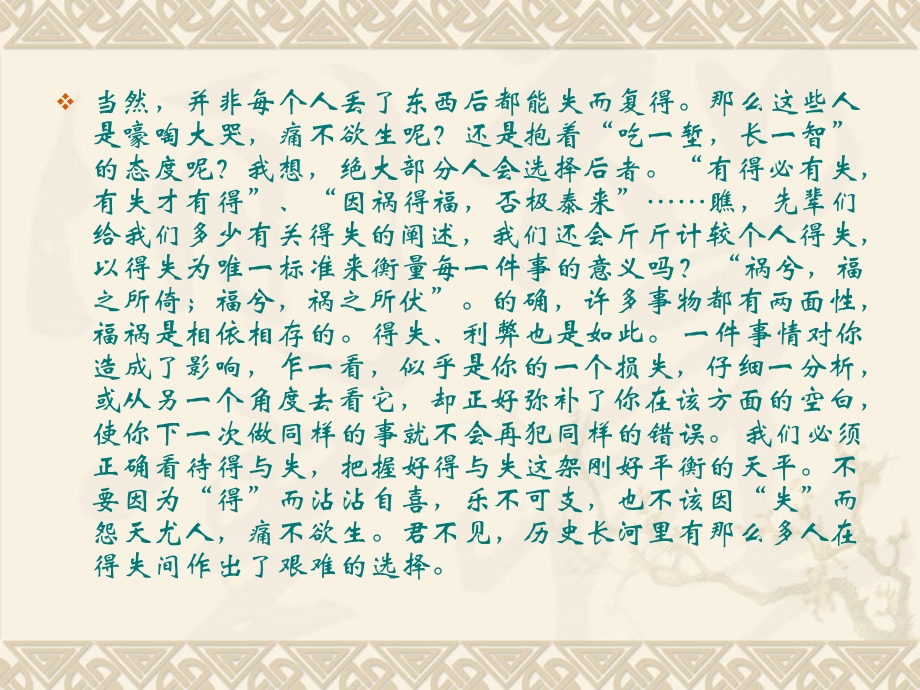 当然，并非每个人丢了东西后都能失而复得。那么这些人
是嚎啕大哭，痛不欲生呢？还是抱着“吃一堑，长一智”
的态度呢？我想，绝大部分人会选择后者。“有得必有失，
有失才有得”、“因祸得福，否极泰来”……瞧，先辈们
给我们多少有关得失的阐述，我们还会斤斤计较个人得失，
以得失为唯一标准来衡量每一件事的意义吗？“祸兮，福
之所倚；福兮，祸之所伏”。的确，许多事物都有两面性，
福祸是相依相存的。得失、利弊也是如此。一件事情对你
造成了影响，乍一看，似乎是你的一个损失，仔细一分析，
或从另一个角度去看它，却正好弥补了你在该方面的空白，
使你下一次做同样的事就不会再犯同样的错误。我们必须
正确看待得与失，把握好得与失这架刚好平衡的天平。不
要因为“得”而沾沾自喜，乐不可支，也不该因“失”而
怨天尤人，痛不欲生。君不见，历史长河里有那么多人在
得失间作出了艰难的选择。